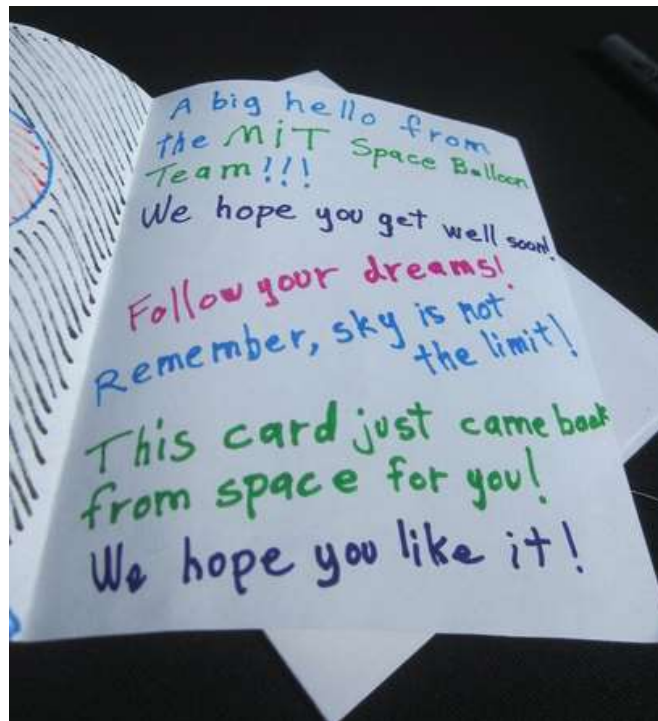 A big hello from
the MiT Space Balloon
Team!!!
We hope you get well soon!
Follow your dreams!
Remember, sky is not
the limit!
This card just came back
from space for you!
We hope you like it!